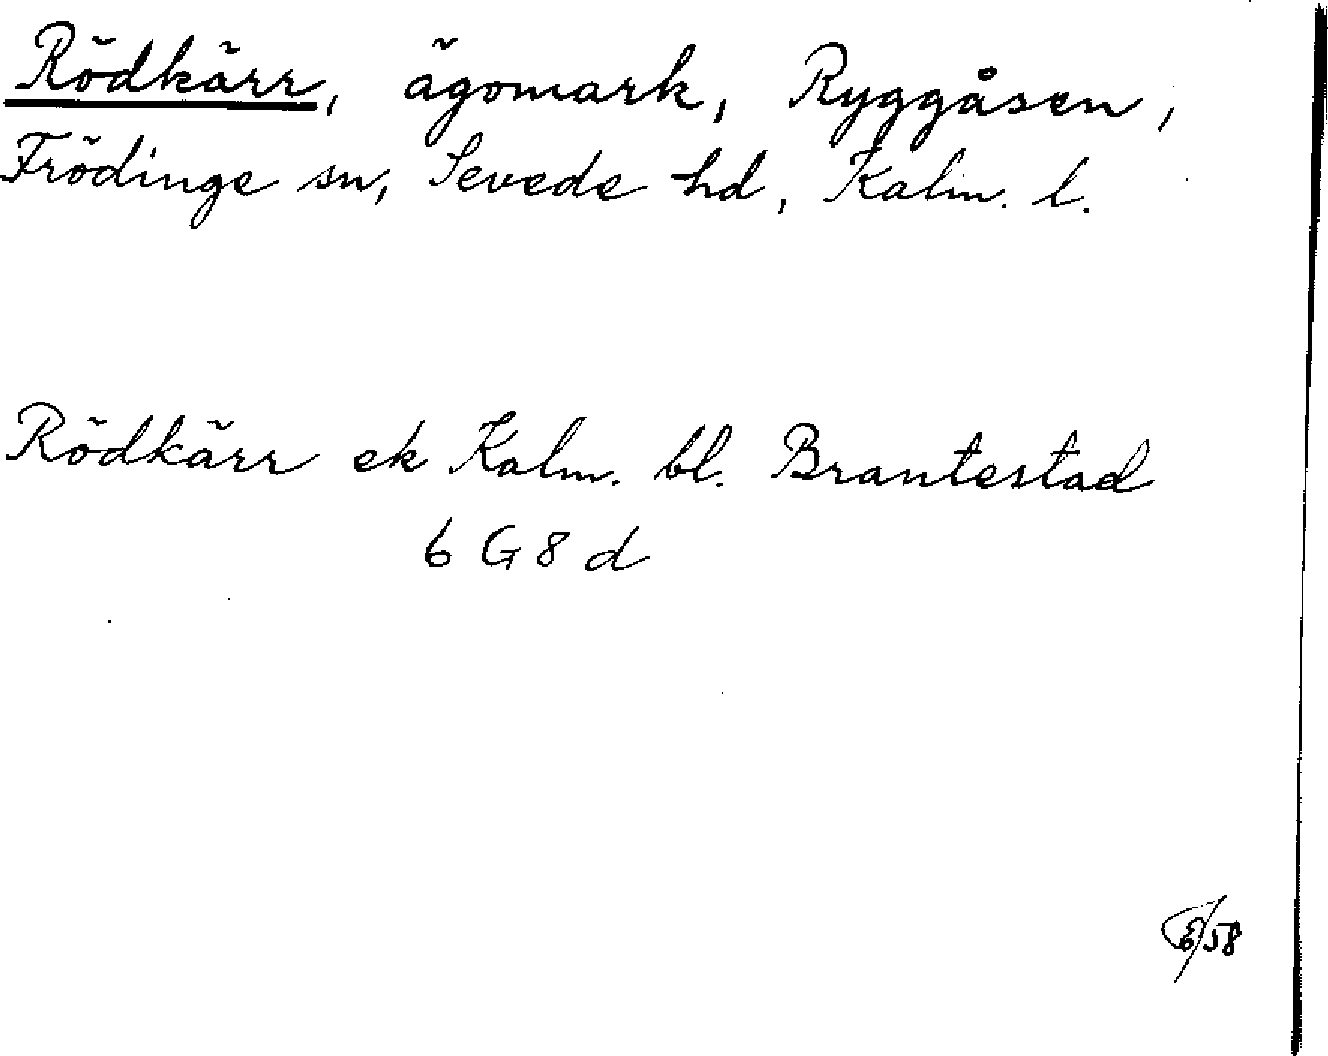 Rödkärr, ägomark, Ryggåsen,
Frödinge sn, Sevede hd, Kalm. l.
Rödkärr ek Kalm. bl. Brantestad
6 G 8 d
/58